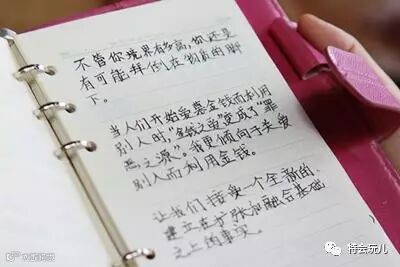 不管你境界有多高,你还是
有可能拜倒在物质的脚
下。
当人们开始爱慕金钱而利用
别人时,“金钱之爱”变成了“罪
恶之源”。我更倾向于去爱
别人而利用金钱。
让我们接受一个全新的、
建立在扩张和融合基础
之上的事实。
特会玩儿